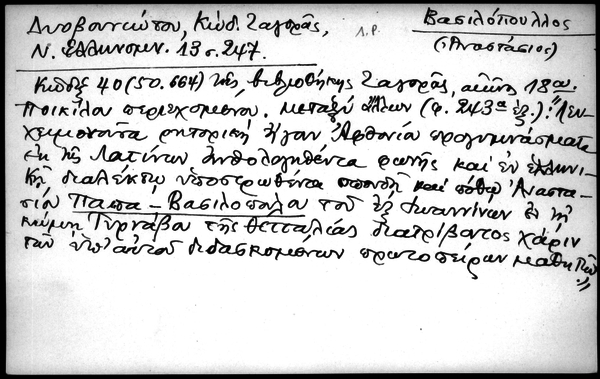 Δυοβουνιώτου, Κώδ. Ζαγορᾶς,
Ν. Ἑλληνομν. 13 σ. 247.
Λ.Ρ.
Βασιλόπουλλος
(Ἀναστάσιος)
Κῶδιξ 40 (50. 664) τῆς βιβλιοθήκης Ζαγορᾶς, αἰῶνος 18ου.
Ποικίλου περιεχομένου. Μεταξὺ ἄλλων (φ. 243α ἑξ.):
χειμονοῦτα ρητορικὴ ἤγουν Ἀφθονία προγυμνάσματα
ἐκ τῆς Λατίνων ἀνθολογηθέντα φωνῆς καὶ ἐν ἑλληνι-
κῇ διαλέκτῳ ὑποστρωθέντα σπουδῇ καὶ πόθῳ Ἀναστα-
σίου Παπα-Βασιλοπούλου τοῦ ἐξ Ἰωαννίνων ἐν τῇ
κώμῃ Τυρνάβου τῆς Θετταλίας διατρίβοντος χάριν
τῶν ὑπ' αὐτοῦ διδασκομένων πρωτοπείρων μαθητῶν"